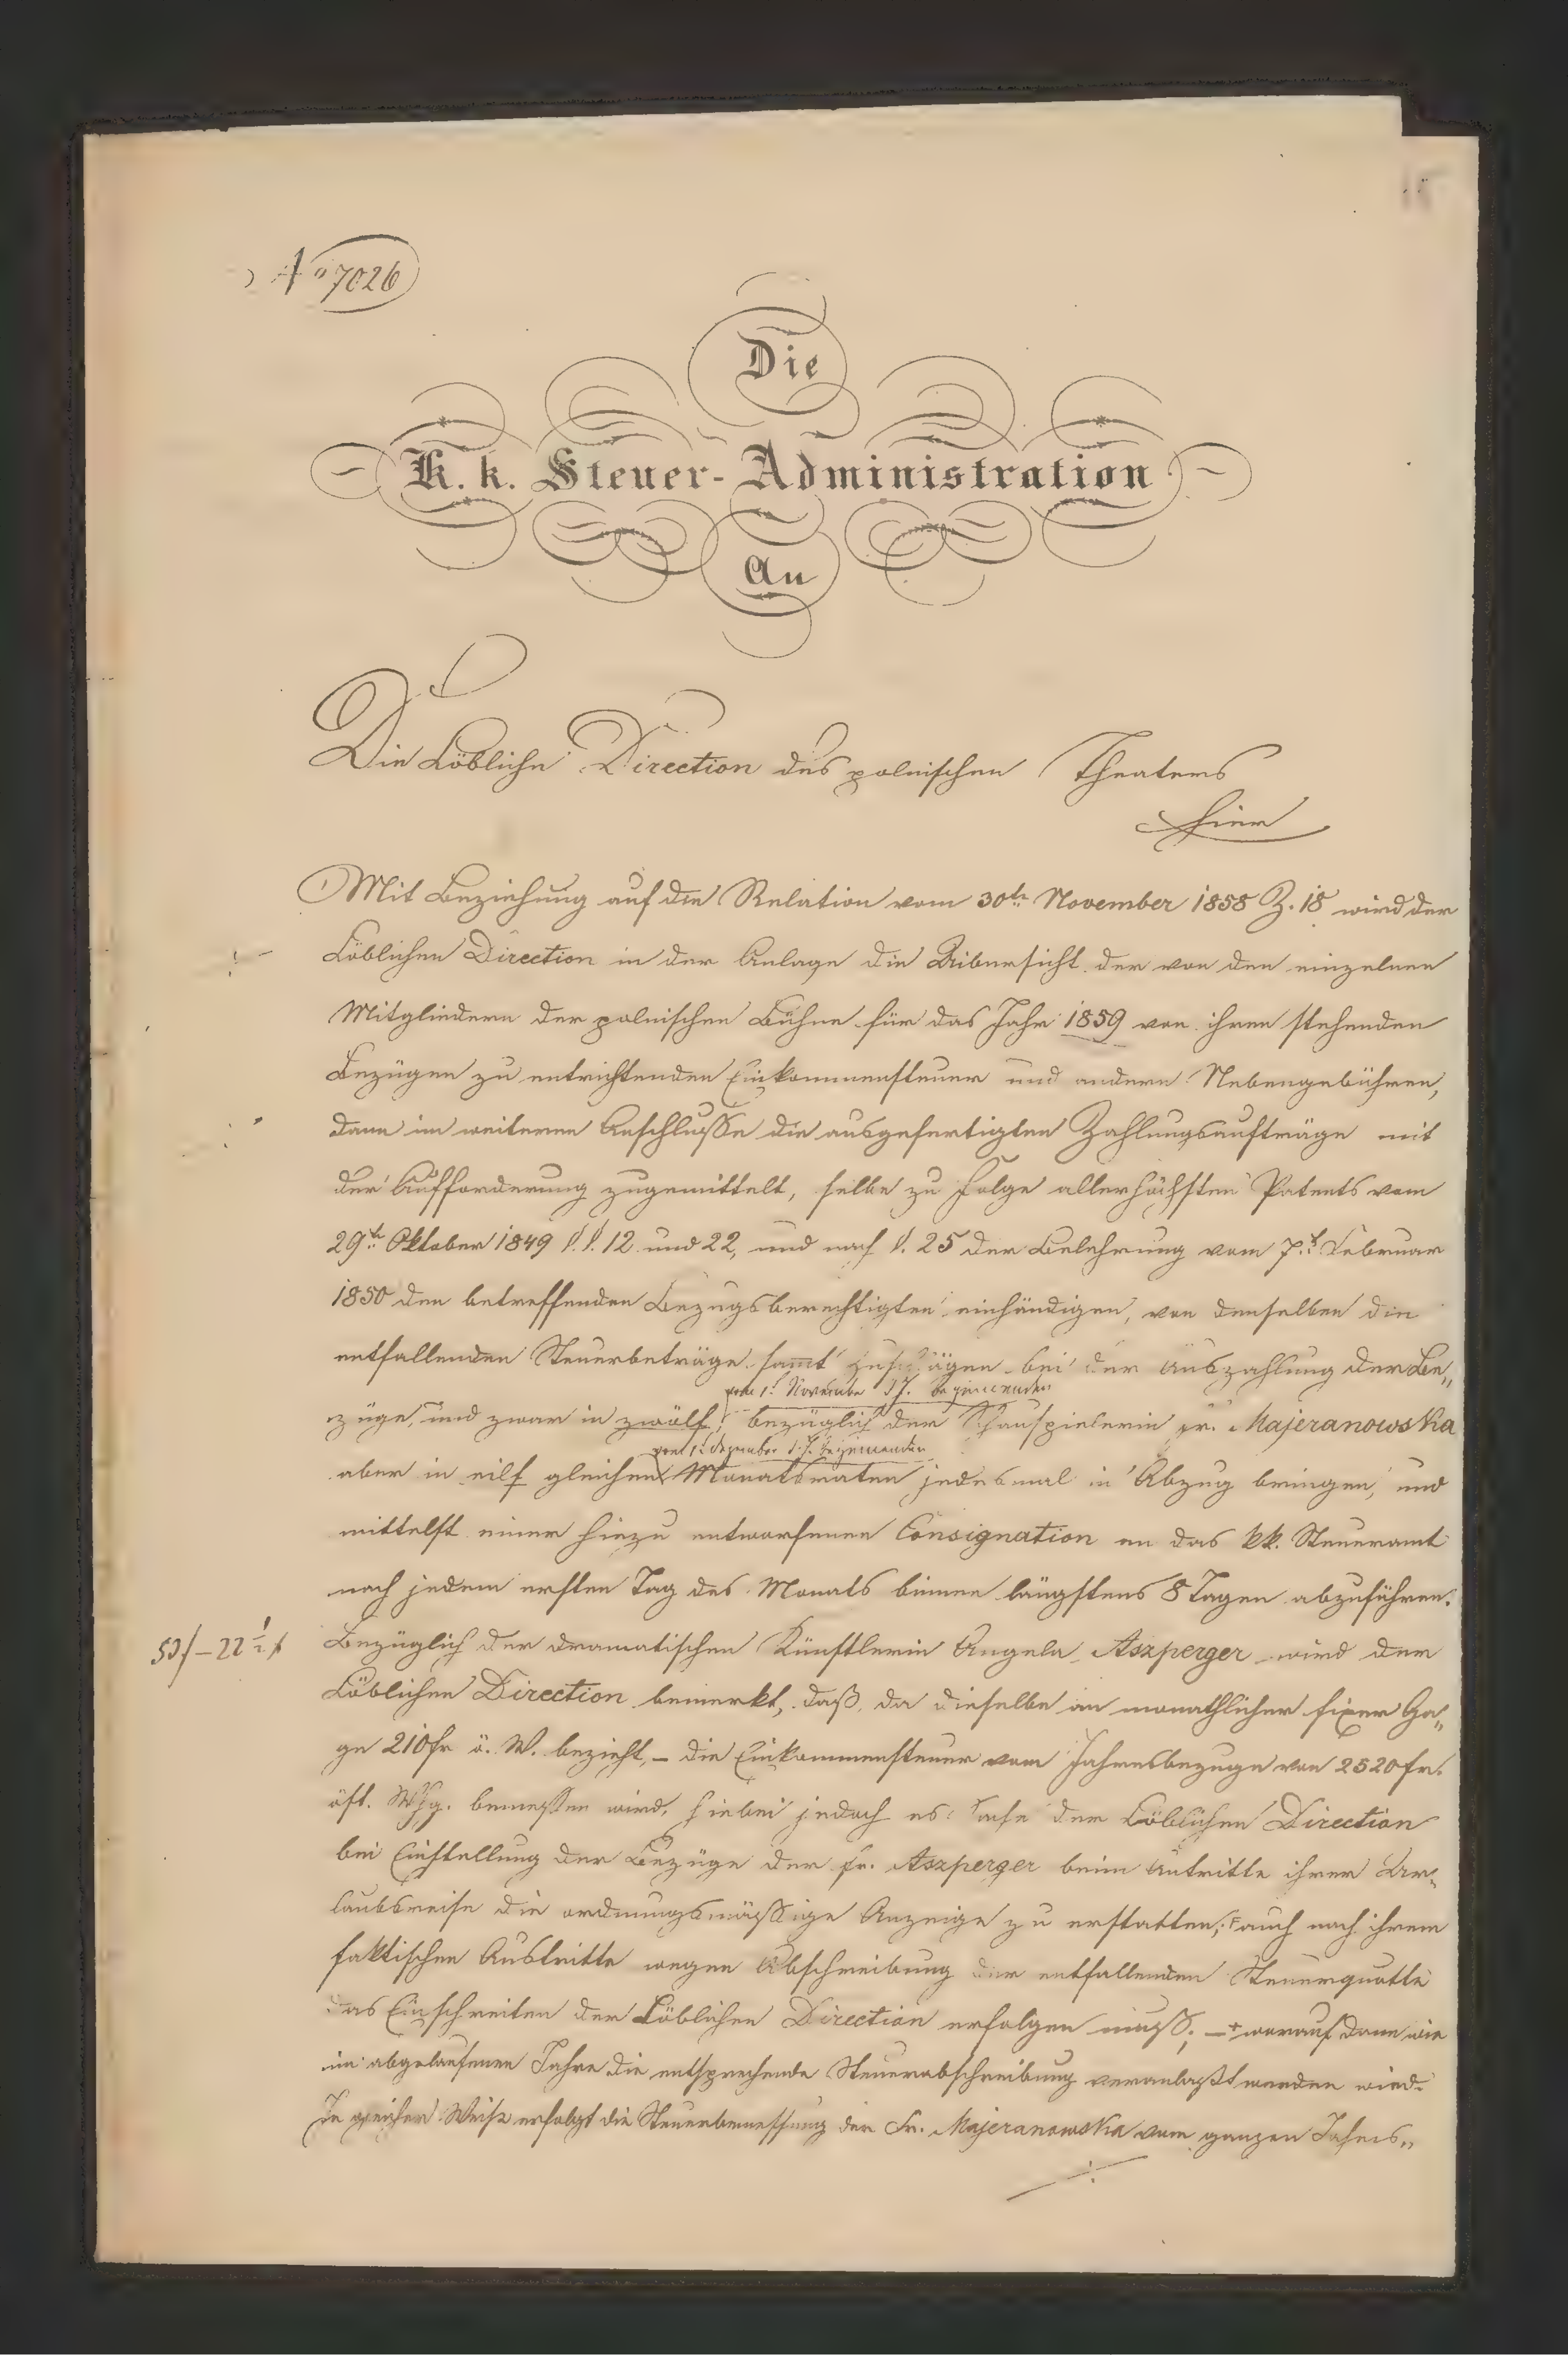 No 7026
Die
K. k. Steuer-Administration
An
Die Löbliche Direction des polnischen Theaters
hier
Mit Beziehung auf die Relation vom 30ten November 1858 Z. 18 wird der
Löblichen Direction in der Anlage die Uibersicht der von den einzelnen
Mitgliedern der polnischen Bühne für das Jahr 1859 von ihren stehenden
Bezügen zu entrichtenden Einkommensteuer und andern Nebengebühren,
dann im weiteren Anschlusse die ausgefertigten Zahlungsaufträge mit
der Aufforderung zugemittelt, selbe zu Folge allerhöchsten Patents vom
29ten Oktober 1849 §.§. 12 und 22, und nach §. 25 der Belehrung vom 7t. Februar
1850 den betreffenden Bezugsberechtigten einhändigen, von denselben die
entfallenden Steuerbeträge sammt Zuschlägen bei der Auszahlung der Be„
vom 1t November d J. beginnenden
züge, und zwar in zwölf, bezüglich der Schauspielerin Fr. Majeranowska
vom 1t Dezember d. J. beginnenden
aber in eilf gleichen Monatsraten jedesmal in Abzug bringen, und
mittelst einer hiezu entworfenen Consignation an das kk. Steueramt
nach jedem ersten Tag des Monats binnen längstens 8 Tagen abzuführen.
Bezüglich der dramatischen Künstlerin Angela Aszperger wird der
Löblichen Direction bemerkt, daß, da dieselbe an monathlicher fixer Ga„
ge 210 fr ö. W. bezieht, – die Einkommensteuer vom Jahresbezuge von 2520 fr.
öst. Whg. bemessen wird, hiebei jedoch es Sache der Löblichen Direction
bei Einstellung der Bezüge der Fr. Aszperger beim Antritte ihrer Ur„
laubsreise die ordnungsmäßige Anzeige zu erstatten, auch nach ihrem
faktischen Austritte wegen Abschreibung der entfallenden Steuerquotte
das Einschreiten der Löblichen Direction erfolgen muß; – worauf dann wie
im abgelaufenen Jahre die entsprechende Steuerabschreibung veranlaßt werden wird.
In gleicher Weise erfolgt die Steuerbemessung der Fr. Majeranowska vom ganzen Jahres„